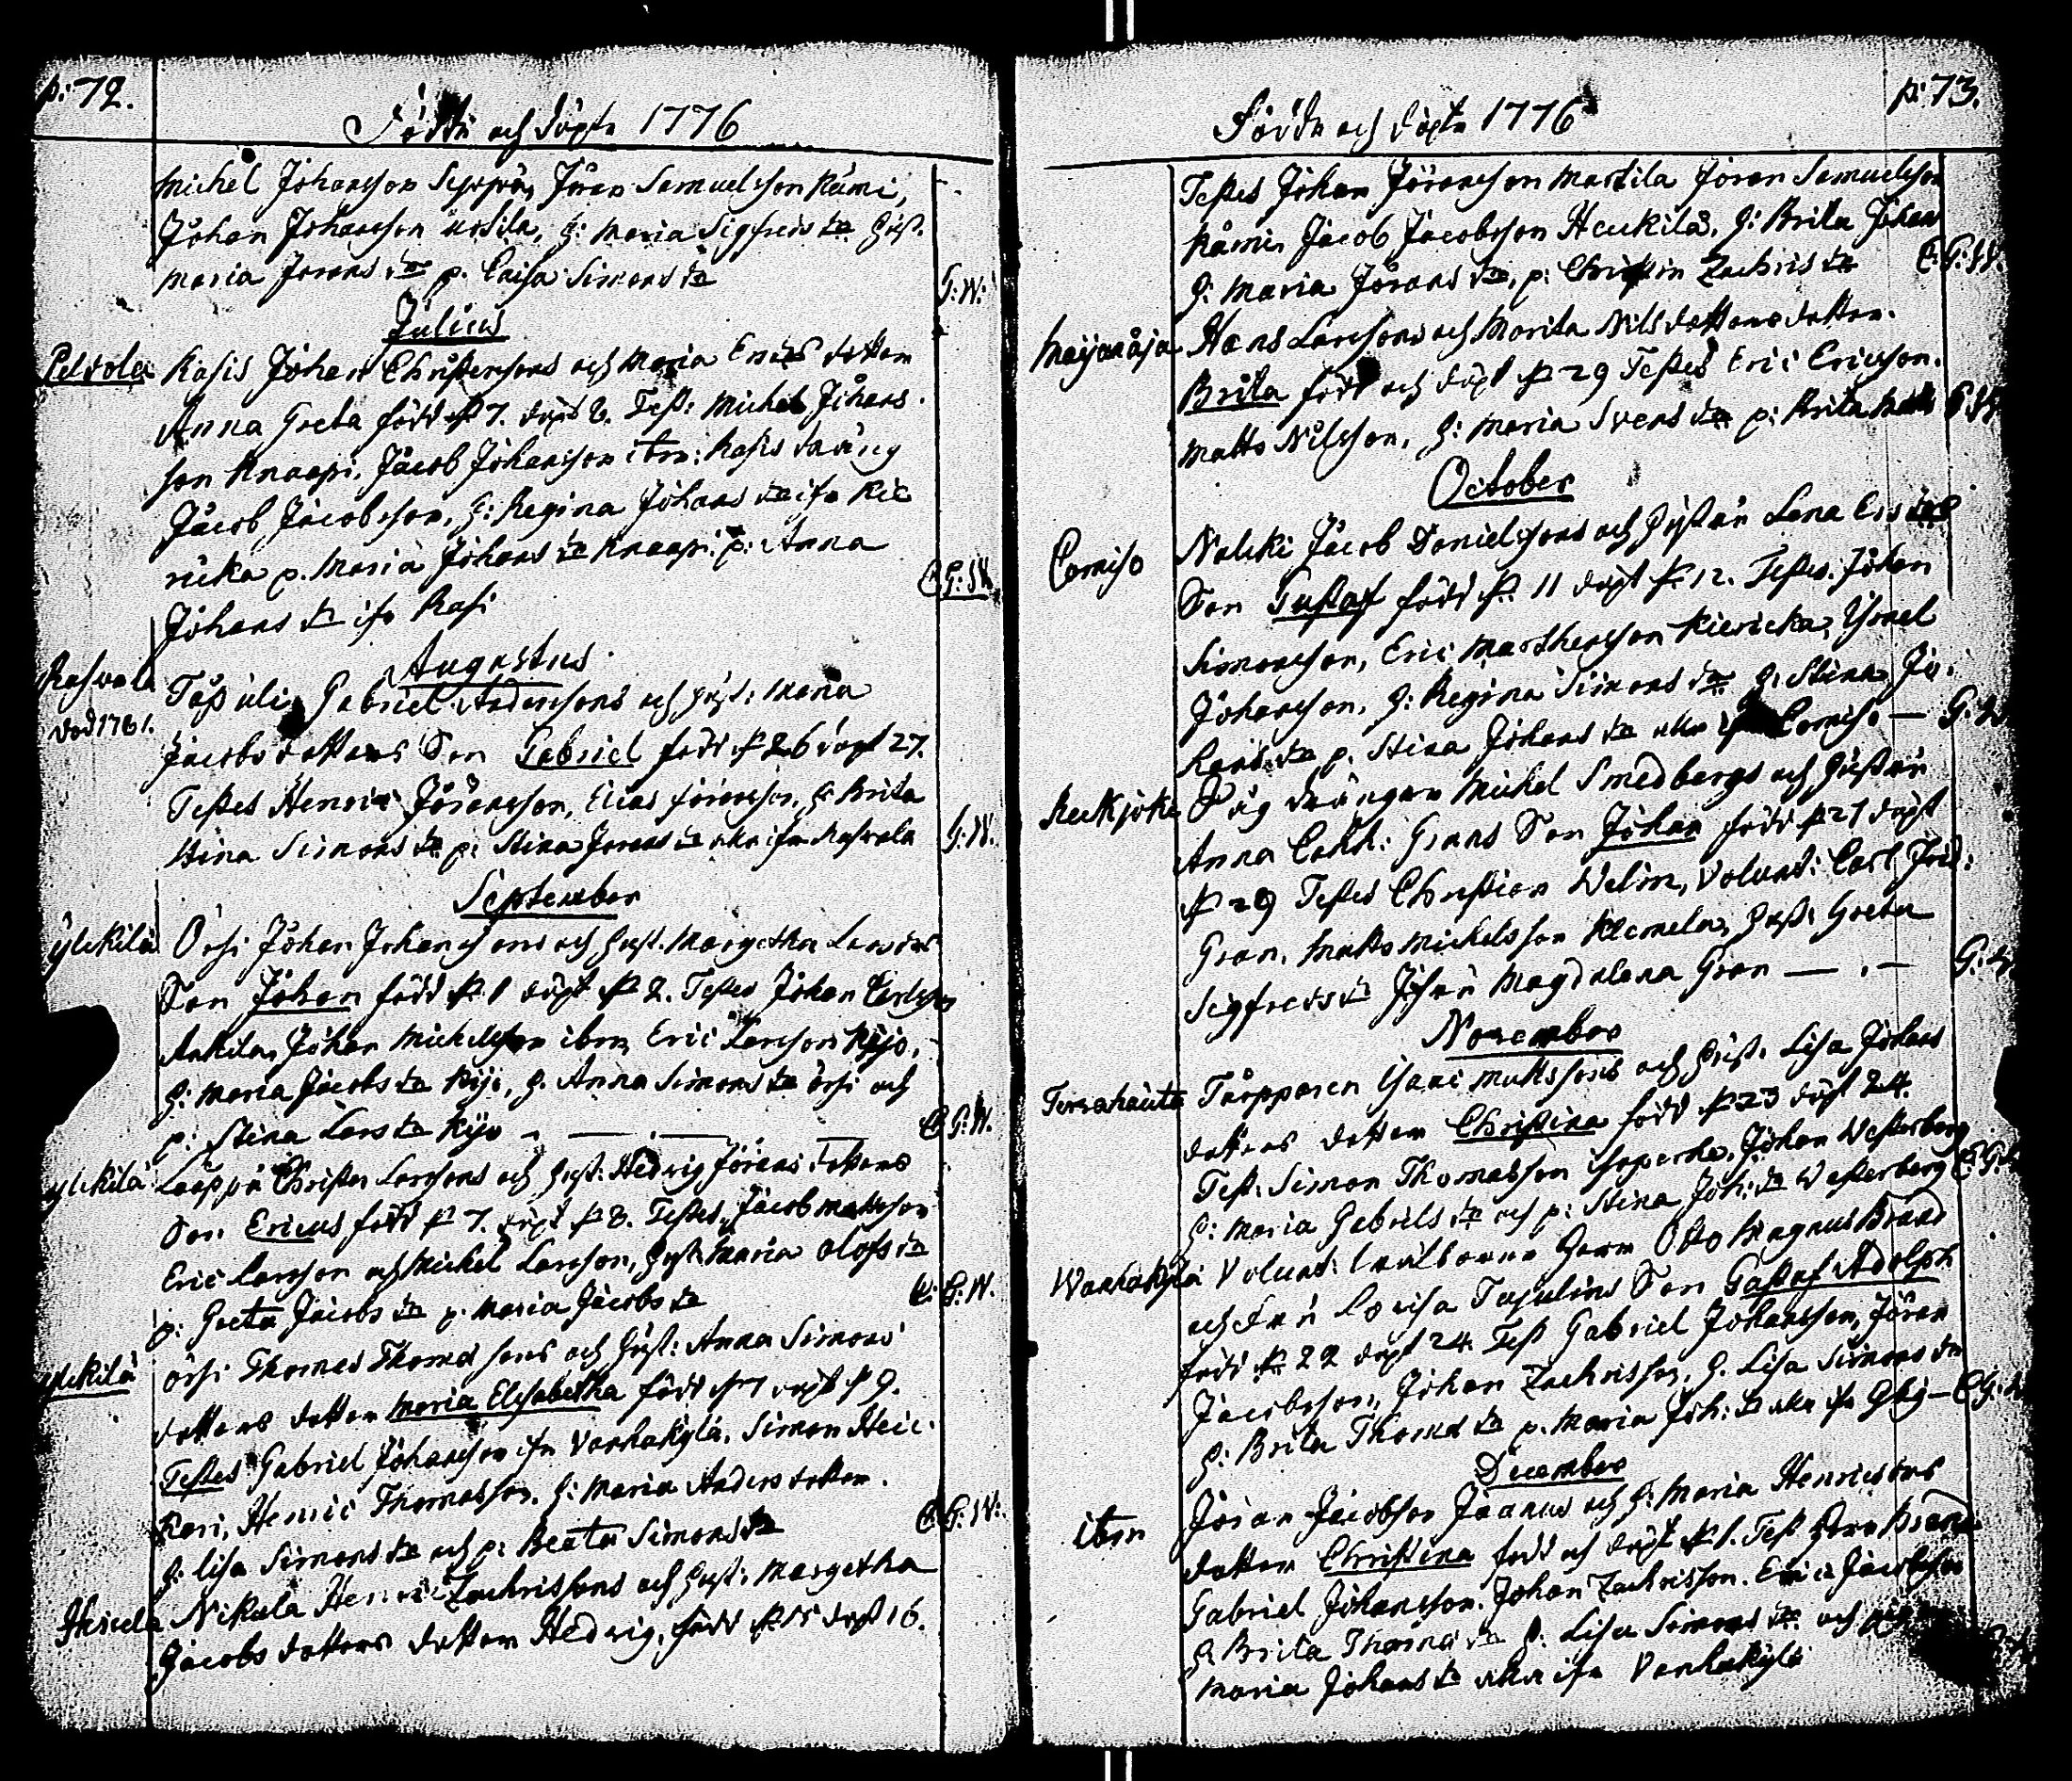 p: 72.
Födde och döpte 1776
Michel Johansson Seppä, Jöran Samuelsson Rämi,
Johan Johansson Uotila, h: Maria Sigfreds dr Hust.
Maria Jörans dr p. Caisa Simons dr
G: W:
Julius
Peltola Rasis Johan Christerssons och Maria Erics dotter
Anna Greta född d 7. döpt 8. Test: Michel Johans
son Knaapi, Jacob Johansson ibm: Rasis dräng
Jacob Jacobsson, h: Regina Johans dr ifr Kie
ricka p. Maria Johans dr Knaapi p: Anna
C G: W.
Johans dr ifr Rasi
Augustus
Rahvala
död 1781.
Gabriel Anderssons och Hust: Maria
Jacobs dotters Son Gabriel född d 26 döpt 27.
Testes Henric Jöransson, Elias Jöransson, h: Brita
Stina Simons dr p: Stina Jörans dr alla ifrn Rahvala
G: W.
September
Ylikilä Örsi Johan Johanssons och Hust. Margetha Larsdrs
Son Johan född d. 1 döpt d 2. Testes Johan Carlsson
Ankila, Johan Michelsson ibm, Eric Larsson Rijo,
h: Maria Jacobs dr Rijo, h. Anna Simons dr Örsi och
p: Stina Lars dr Rijo
C G: W.
Ylikilä Lääppä Christer Larssons och Hust: Hedvig Jörans dotters
Son Ericus född d 7. döpt d 8. Testes, Jacob Mattsson
Eric Larsson och Michel Larsson, Hust. Maria Olofs dr
p: Greta Jacobs dr p. Maria Jacobs dr
C: G: W.
Ylikilä Örsi Thomas Thomassons och Hust: Anna Simons
dotters dotter Maria Elisabetha född d 7 döpt d 9.
Testes Gabriel Johansson ifrn Vanhakylä, Simon Hei
kari, Henric Thomasson. h: Maria Anders dotter.
h: Lisa Simons dr och p: Beata Simons dr
C G: W:
Nikula Henric Zachrissons och Hust: Margetha
Jacobs dotters dotter Hedvig, född d 15 döpt 16.
p: 73.
Födde och döpte 1776
Testes Johan Jöransson Martila Jöran Samuelsson
Rämi, Jacob Jacobsson Heikilä, h: Brita Johans
h: Maria Jörans dr, p: Christin Zachris dr
C: G: W.
Maijanoja Hans Larssons och Morita Nilsdotters dotter.
Brita född och döpt d 29 Testes Eric Ericsson.
Matts Nilsson, h: Maria Svens dr p: Brita Matts
October
Comiso Jacob Danielssons och Hustrun Lena Ers drs
Son Gustaf född d: 11 döpt d: 12. Testes. Johan
Simonsson, Eric Marthensson Kiericka, Ysrael
Johansson, h: Regina Simons dr h: Stina Jö.
rans dr p. Stina Johans dr alla ifrn Comiso — G: W
drängen Michel Smedbergs och Hustrun
Anna Cath: Grans Son Johan född d 27 döpt
d 29 Testes Christian Welin, Volunt: Carl Frid:
Gran, Matts Michelsson Klemela, Hust: Greta
Sigfreds dr Jgfru Magdalena Gran — . — G: W.
November
Torpparen Matssons och Hust. Lisa Johans
dotters dotter Christina född d 23 döpt 24.
Test: Simon Thomasson Johan Westerberg
h: Maria Gabriels dr och p: Stina Joh: dr Westerberg
Wanhakylä Volunt: Wälborne Herr Otto Magnus Brand
och Fru Lovisa Son Gustaf Adolph
född d: 22 döpt 24 Test Gabriel Johansson, Jöran
Jacobsson, Johan Zachrisson. h. Lisa Simons dr
h: Brita Thomas dr p. Maria Joh: dr
December
ibm Jöran Jacobsson Jaanus och h: Maria Henricsdrs
dotter Christina född och döpt d 1. Test
Gabriel Johansson, Johan Zachrisson. Eric Jacobsson
h: Brita Thomas dr h: Lisa Simons dr och
Maria Johans dr alla ifrn Vanhakylä